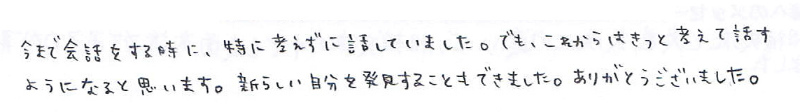 今まで会話をする時に、特に考えずに話していました。でも、これからはきっと考えて話す
ようになると思います。新らしい自分を発見することもできました。ありがとうございました。